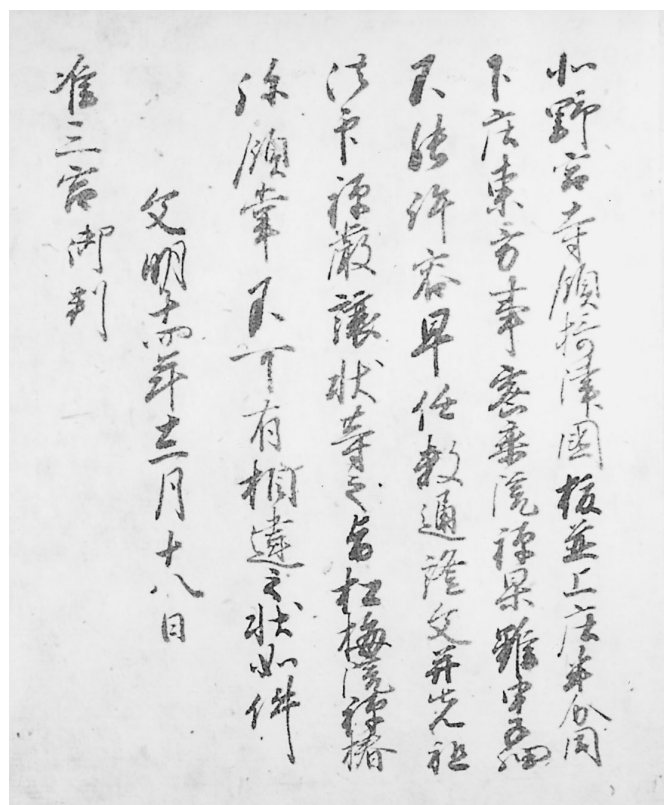 北野宮寺領摂津国榎並上庄半分同
下庄東方事密乗院禅杲雖申子細
不能許容早任数通證文并先祖
法印禅厳讓状等之旨松梅院禅椿
弥領掌不可有相違之状如件
文明十四年十二月十八日
准三宮御判